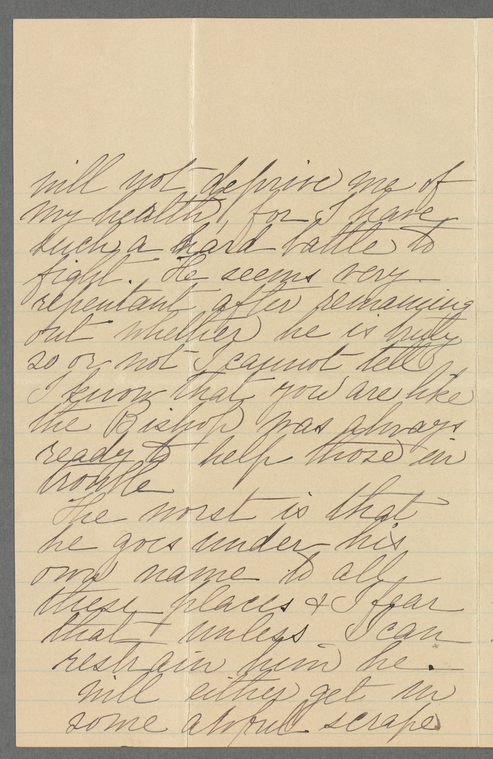 will not deprive me of
my health, for I have
such a hard battle to
fight. He seems very
repentant after remaining
out whether he is truly
so or not I cannot tell
I know that you are like
the Bishop was always
ready to help those in
trouble
The worst is that
he goes under his
own name to all
these places & I fear
that unless I can
restrain him he
will either get in
some awful scrape